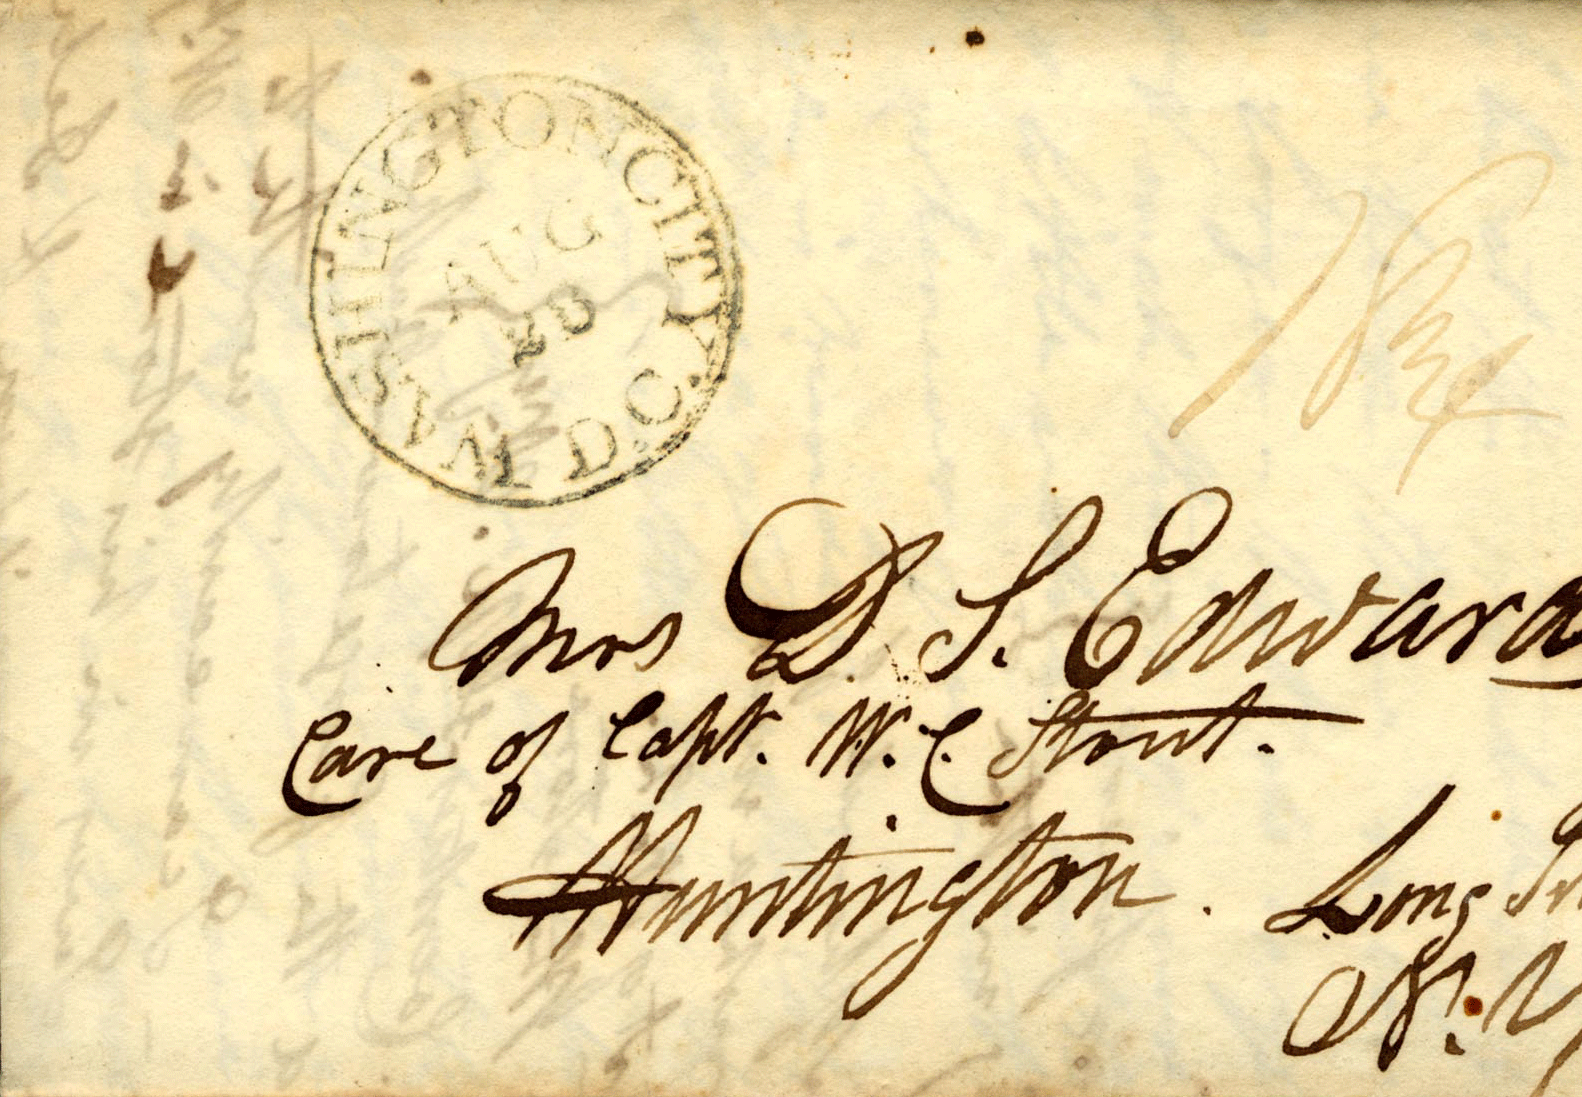 WASHINGTON CITY. D.C.
AUG
18¾
Mrs D. S. Edward
Care of Capt. W. C. Stout.
Huntington. Long
N. Y